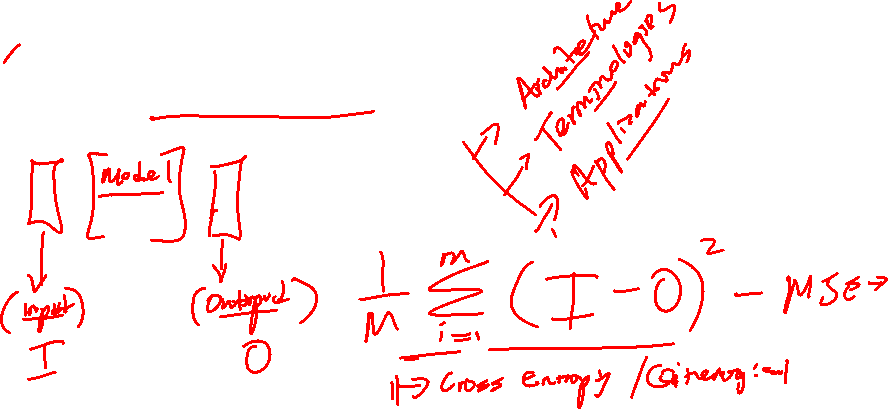 Architecture
Terminologies
Applications
Model
(Input) (Output)
I O
1/M m Σ i=1 (I - O)² - MSE →
↦ Cross Entropy /